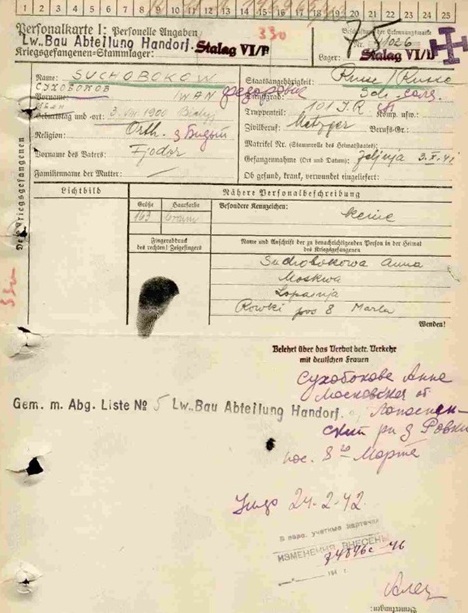 1 2 3 4 5 6 7 8 9 10 11 12 13 14 15 16 17 18 19 20 21 22 23 24 25
Personalkarte I: Personelle Angaben
330
Beschriftung der Erkennungsmarke
Lw.Bau Abteilung Handorf. Stalag VI/D
Kriegsgefangenen-Stammlager:
Lager: Stalag VI/D
Des Kriegsgefangenen
Name: SUCHOBOKOW
СУХОБОКОВ
Staatsangehörigkeit: Russe / Russe
Vorname: IWAN
Иван
Dienstgrad: Sold. солд.
Truppenteil: 101 J.R. Komp. usw.:
Geburtstag und -ort: 3. 1900
Zivilberuf: Metzger Berufs-Gr.:
Religion: Orth.
Matrikel Nr. (Stammrolle des Heimatstaates):
Vorname des Vaters: Fjodor
Gefangennahme (Ort und Datum): Jelnja 3.X.41
Familienname der Mutter:
Ob gesund, krank, verwundet eingeliefert:
Lichtbild
Nähere Personalbeschreibung
Größe Haarfarbe
Besondere Kennzeichen:
163 braun
keine
Fingerabdruck
des rechten Zeigefingers
Name und Anschrift der zu benachrichtigenden Person in der Heimat
des Kriegsgefangenen
Suchobokowa Anna
Moskwa
Lopasnja
Rowki pos 8 Marta
Wenden!
330
Belehrt über das Verbot betr. Verkehr
mit deutschen Frauen
Сухобокова Анна
Московская об
Gem. m. Abg. Liste № 5 Lw.Bau Abteilung Handorf.
Лопаснен-
ский рн д Ровки
пос. 8го Марта
24-2-42
учетные карточки
ИЗМЕНЕНИЯ ВНЕСЕНЫ
Bemerkungen: